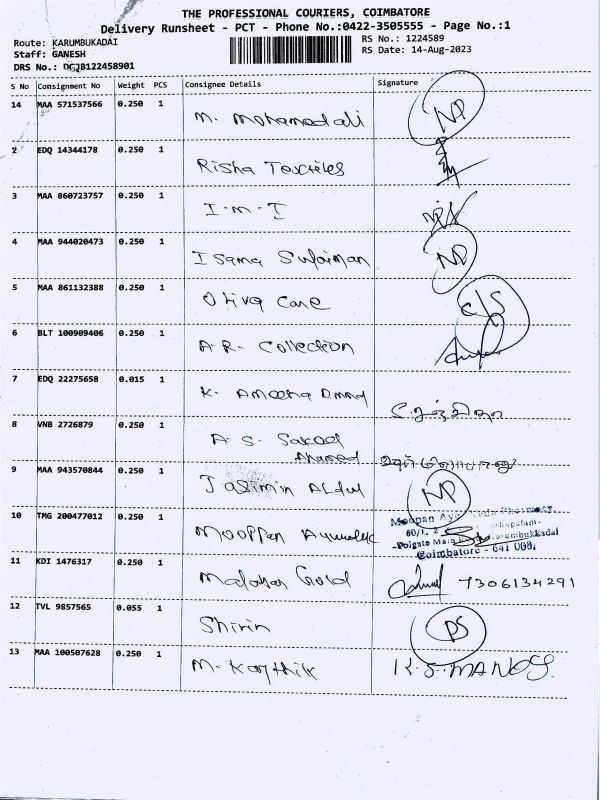 THE PROFESSIONAL COURIERS, COIMBATORE
Delivery Runsheet - PCT - Phone No.:0422-3505555 - Page No.:1
Route: KARUMBUKADAI
RS No.: 1224589
Staff: GANESH
RS Date: 14-Aug-2023
DRS No.:
S No Consignment No Weight PCS Consignee Details Signature
14 MAA 571537566 0.250 1 M. Mohamed ali NP
2 EDQ 14344178 0.250 1 Risha Textiles
3 MAA 860723757 0.250 1 I.M.I
4 MAA 944020473 0.250 1 Isana Sulaiman NP
5 MAA 861132388 0.250 1 Oliva Care C/S
6 BLT 100909406 0.250 1 A.R. Collection
7 EDQ 22275658 0.015 1 K. Ameena
8 VNB 2726879 0.250 1 A.S.
Ahamed
9 MAA 943570844 0.250 1 Jasimin Abdul NP
10 TMG 200477012 0.250 1 Mooppan
60/1, 2
Coimbatore - 641 008.
11 KDI 1476317 0.250 1 Malabar Gold 7306134291
12 TVL 9857565 0.055 1 Shirin DS
13 MAA 100507628 0.250 1 M. Karthik K.S. MANOJ